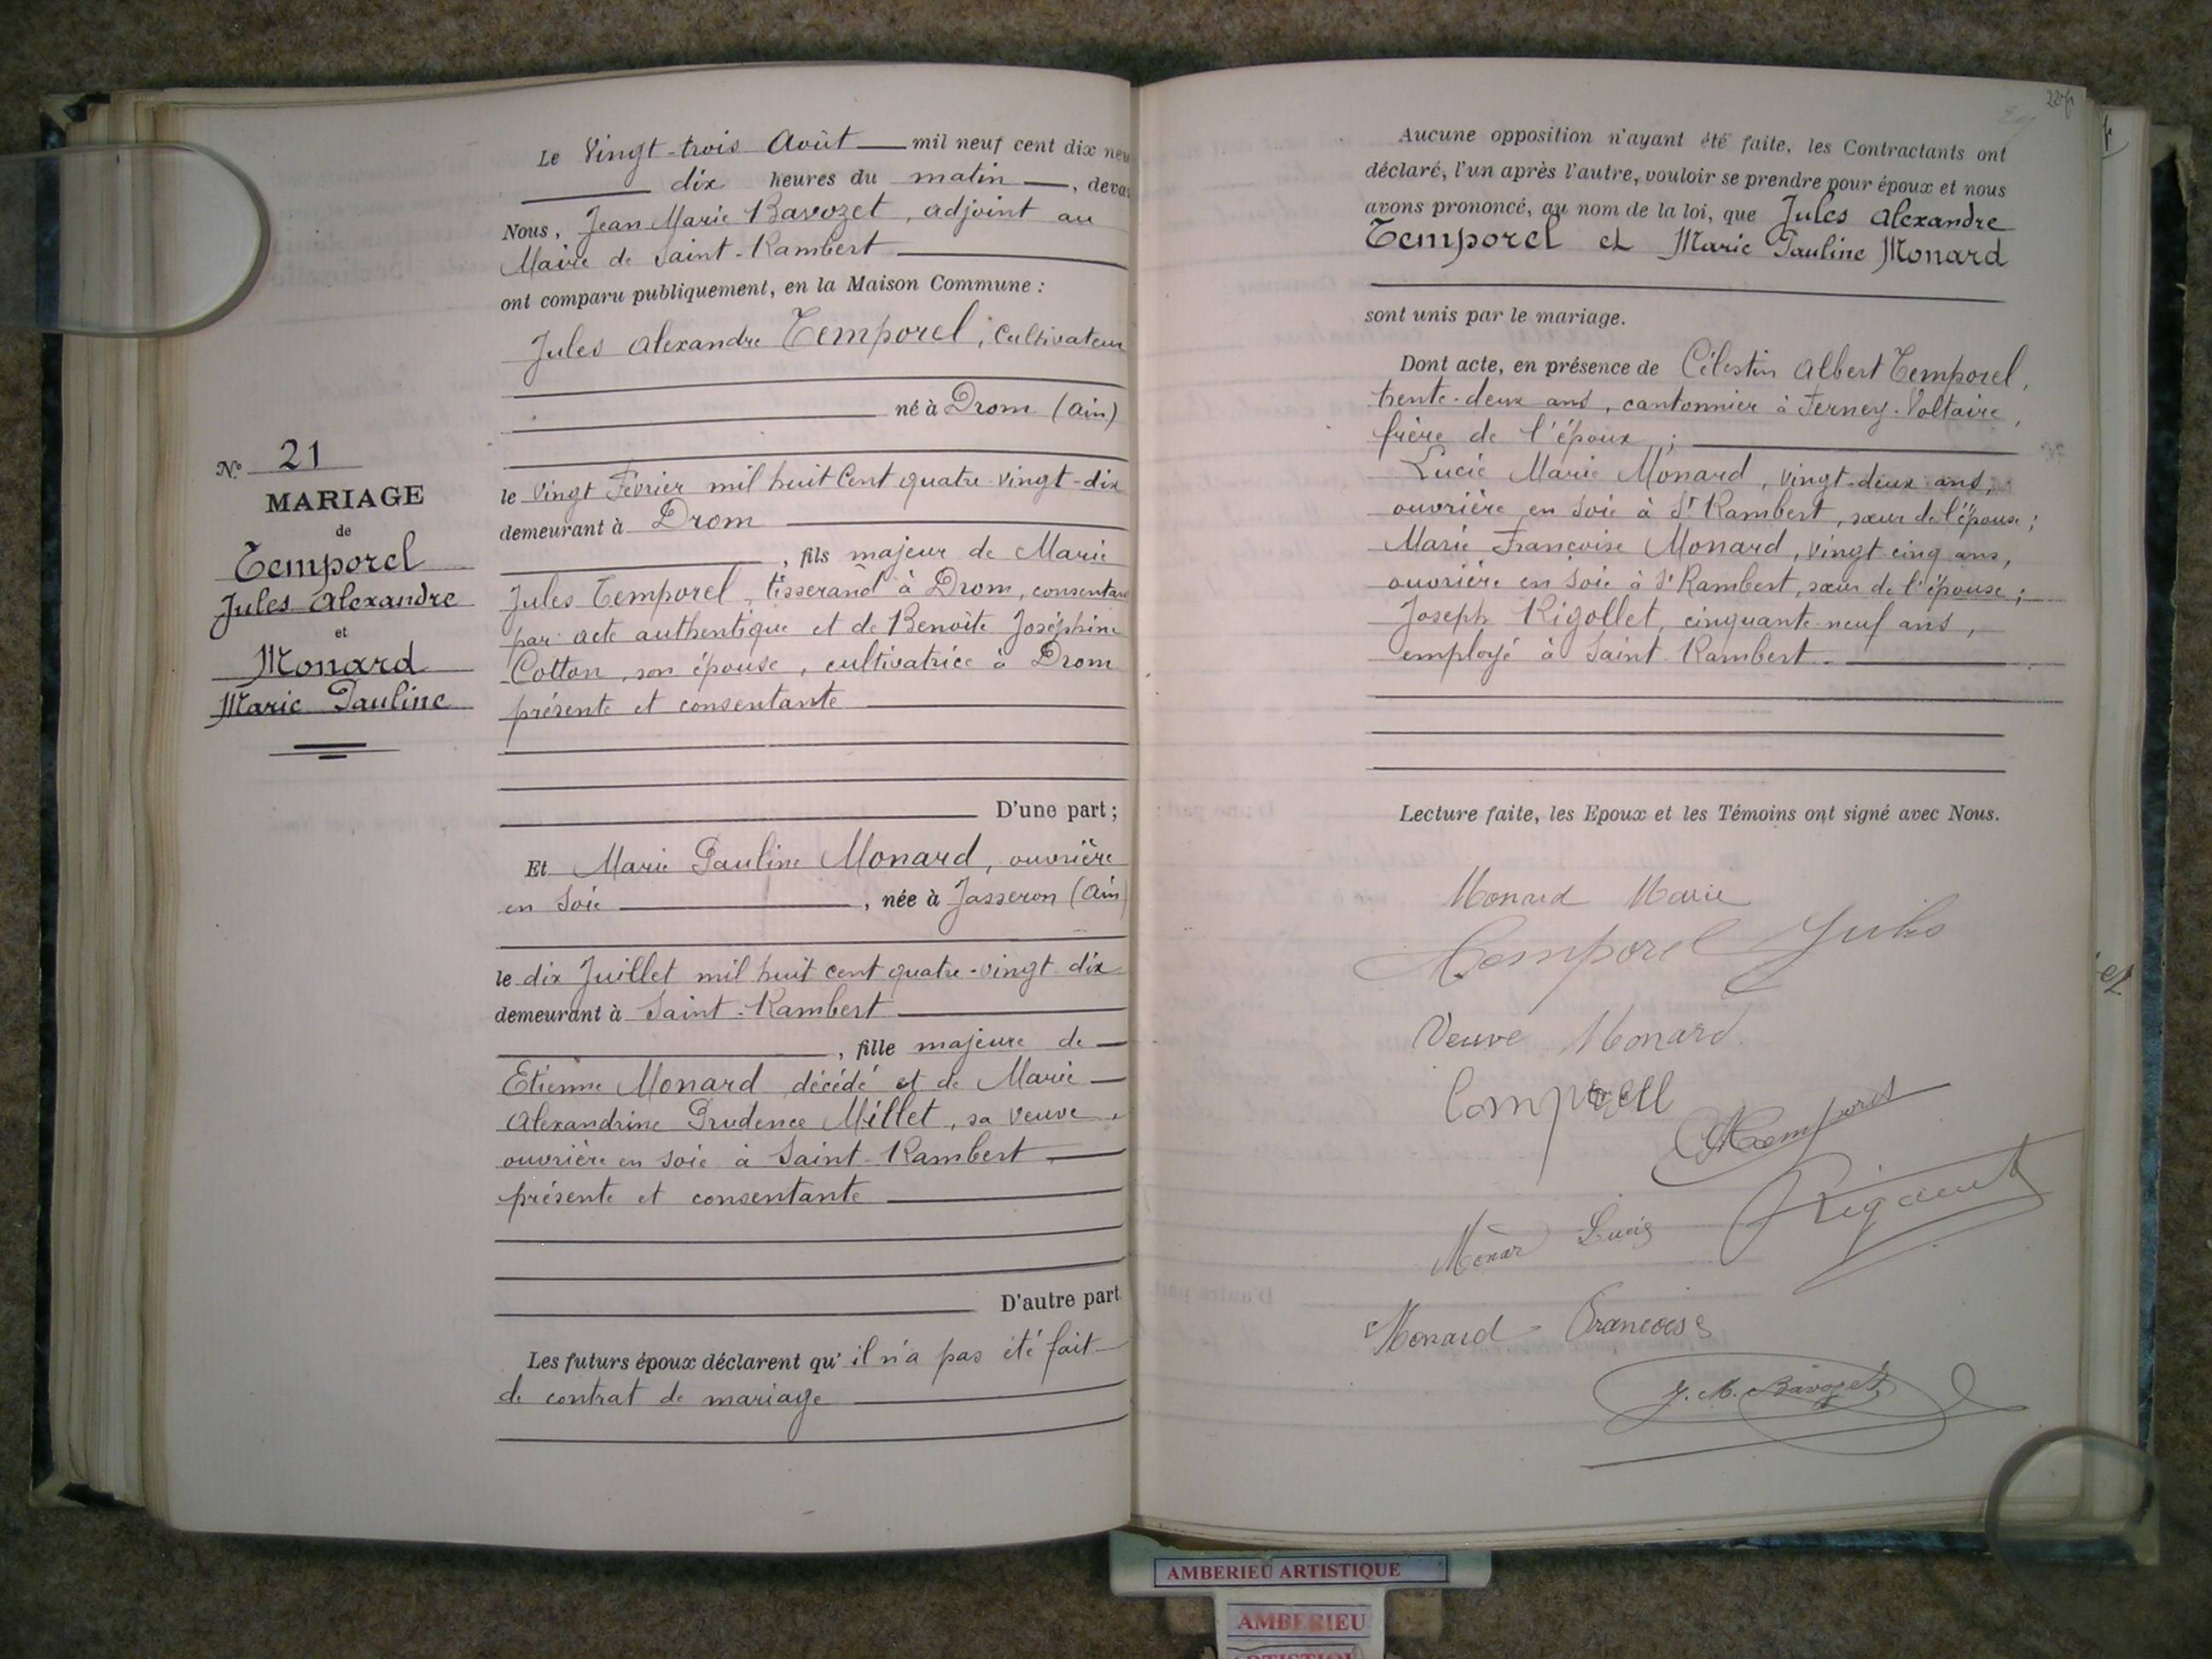 Le Vingt-trois Août mil neuf cent dix neu
dix heures du matin, deva
Nous, Jean Marie Bavozet, adjoint au
Maire de Saint-Rambert
ont comparu publiquement, en la Maison Commune :
Jules Alexandre Temporel, Cultivateur
né à Drom (Ain)
le Vingt Février mil huit Cent quatre-vingt-dix
demeurant à Drom
, fils majeur de Marie
Jules Temporel, tisserand à Drom, consentan
par acte authentique et de Benoîte Joséphine
Cotton, son épouse, cultivatrice à Drom
présente et consentante
D'une part ;
Et Marie Pauline Monard, ouvrière
en soie, née à Jasseron (Ain)
le dix Juillet mil huit cent quatre-vingt dix
demeurant à Saint-Rambert
, fille majeure de
Etienne Monard, décédé et de Marie
Alexandrine Prudence Millet, sa veuve,
ouvrière en soie à Saint-Rambert
présente et consentante
D'autre part
Les futurs époux déclarent qu'il n'a pas été fait
de contrat de mariage
No 21
MARIAGE
de
Temporel
Jules Alexandre
et
Monard
Marie Pauline
Aucune opposition n'ayant été faite, les Contractants ont
déclaré, l'un après l'autre, vouloir se prendre pour époux et nous
avons prononcé, au nom de la loi, que Jules Alexandre
Temporel et Marie Pauline Monard
sont unis par le mariage.
Dont acte, en présence de Célestin Albert Temporel,
trente-deux ans, cantonnier à Ferney-Voltaire,
frère de l'époux ;
Lucie Marie Monard, vingt-deux ans,
ouvrière en soie à St Rambert, sœur de l'épouse ;
Marie Françoise Monard, vingt cinq ans,
ouvrière en soie à St Rambert, sœur de l'épouse ;
Joseph Rigollet, cinquante-neuf ans,
employé à Saint Rambert.
Lecture faite, les Epoux et les Témoins ont signé avec Nous.
Monard Marie
Temporel Jules
Veuve Monard
Monar Lucie
Monard Francoise
J. M. Bavozet
et
AMBERIEU ARTISTIQUE
AMBERIEU
ARTISTIQU